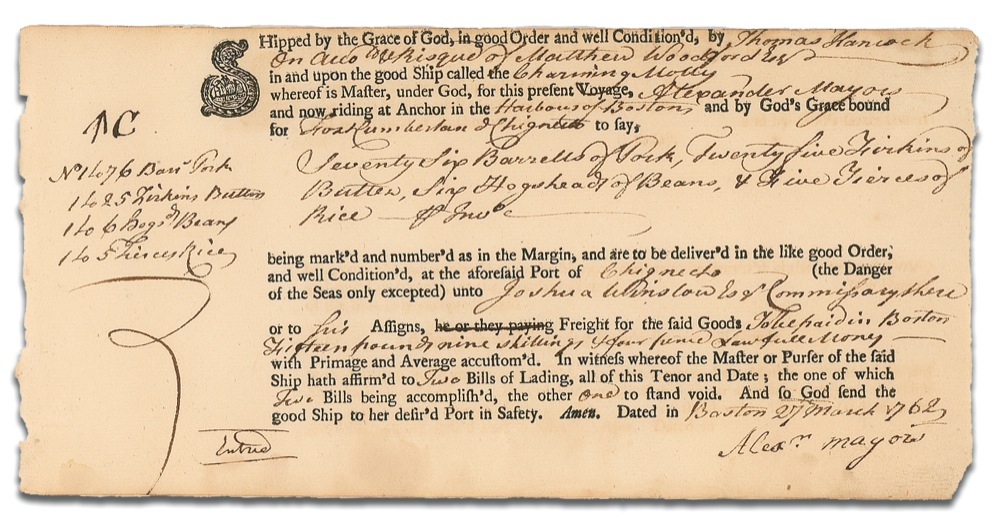 SHipped by the Grace of God, in good Order and well Condition'd, by Thomas Hancock
On Acco & Risque of Matthew Woodford Esqr
in and upon the good Ship called the Charming Molly
whereof is Master, under God, for this present Voyage, Alexander Mayors
and now riding at Anchor in the Harbour of Boston, and by God's Grace bound
for Fort Cumberland Chignecto to say,
Seventy Six Barrells of Pork, Twenty five Firkins of
Butter, Six Hogshead of Beans, & Five Tierces of
Rice
No 1 to 76 Barrs Pork
1 to 25 Firkins Butter
1 to 6 Hogsds Beans
1 to 5 Tierces Rice
being mark'd and number'd as in the Margin, and are to be deliver'd in the like good Order,
and well Condition'd, at the aforesaid Port of Chignecto (the Danger
of the Seas only excepted) unto Joshua Winslow Esqr Commissary there
or to his Assigns, he or they paying Freight for the said Goods To be paid in Boston
Fifteen pounds nine shillings & four pence Lawfull Money
with Primage and Average accustom'd. In witness whereof the Master or Purser of the said
Ship hath affirm'd to Two Bills of Lading, all of this Tenor and Date; the one of which
Two Bills being accomplish'd, the other one to stand void. And so God send the
good Ship to her desir'd Port in Safety. Amen. Dated in Boston 27 March 1762
Alexr Mayors
Entred